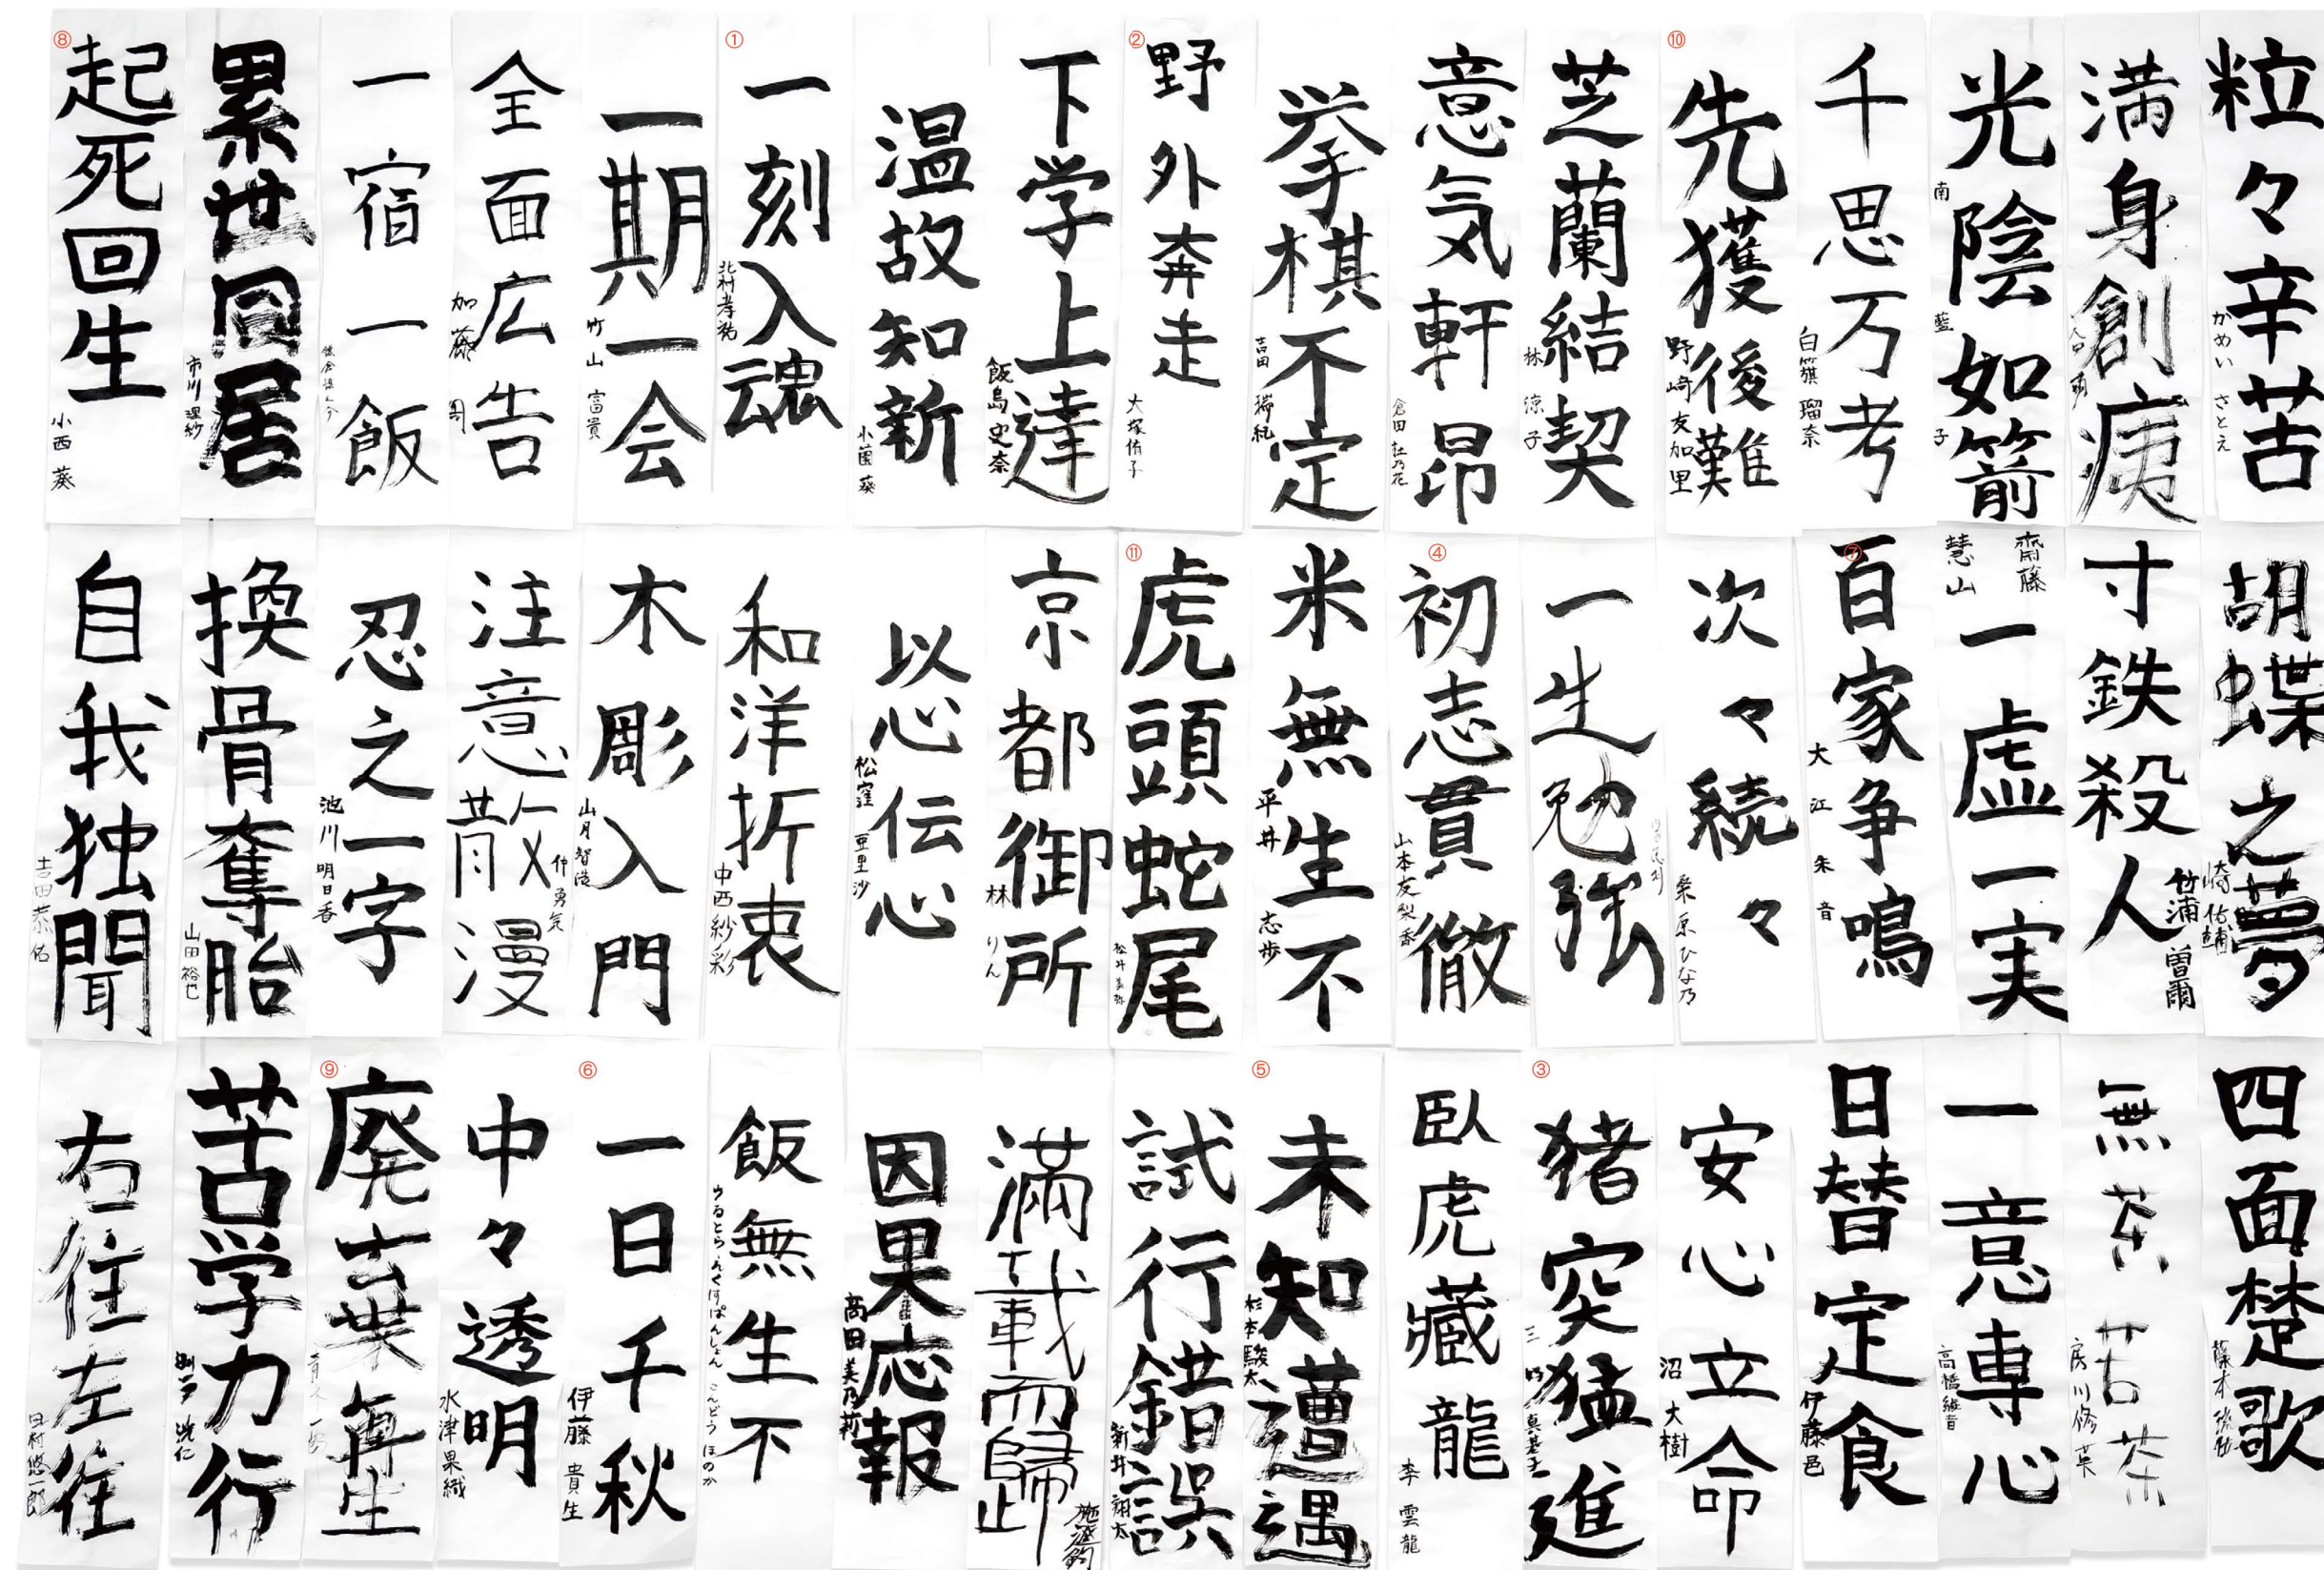 粒々辛苦
かめい さとえ
満身創痍
光陰如箭
南 藍子
千思万考
白簱 瑠奈
⑩
先獲後難
野崎友加里
芝蘭結契
林 涼子
意気軒昂
倉田 杜乃花
挙棋不定
吉田 瑞紀
②
野外奔走
大塚侑子
下学上達
飯島史奈
温故知新
小菌 葵
①
一刻入魂
北村孝
一期一会
竹山 富貴
全面広告
加藤
一宿一飯
累世同居
市川 理紗
⑧
起死回生
小西 葵
胡蝶之夢
崎 佑輔
寸鉄殺人
竹浦 曽爾
一虚一実
齋藤 慧山
⑦
百家争鳴
大江 朱音
次々続々
桑原ひな乃
一生勉強
④
初志貫徹
山本友梨香
米無生不
平井 志歩
⑪
虎頭蛇尾
松井美弥
京都御所
林 りん
以心伝心
松窪 亜里沙
和洋折衷
中西紗彩
木彫入門
山月智浩
注意散漫
仲 勇気
忍之一字
池川 明日香
換骨奪胎
山田 裕也
自我独聞
吉田恭佑
四面楚歌
篠本
無茶苦茶
房川修英
一意専心
高橋継音
日替定食
伊藤邑
安心立命
沼 大樹
③
猪突猛進
三 真基子
臥虎蔵龍
李 雲龍
⑤
未知遭遇
杉本駿太
試行錯誤
新井 翔太
満載而歸
施澄鈞
因果応報
高田美乃莉
飯無生不
うるとらえくすぱんしょん こんどう ほのか
⑥
一日千秋
伊藤 貴生
中々透明
水津果織
⑨
廃棄再生
苦学力行
洸仁
右往左往
悠一郎